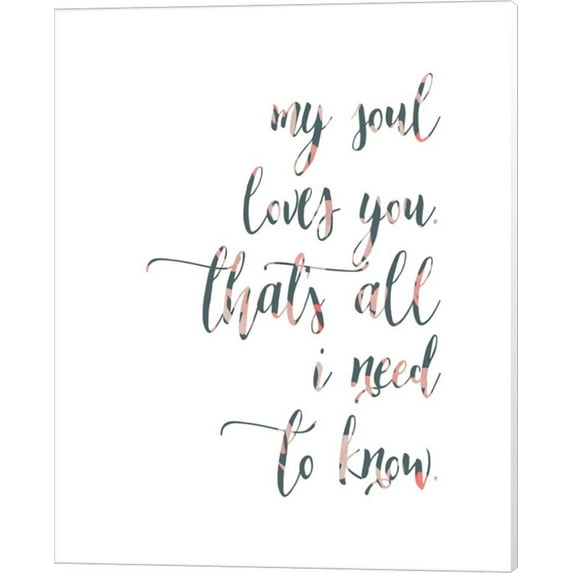 my soul
loves you.
that's all
i need
to know.